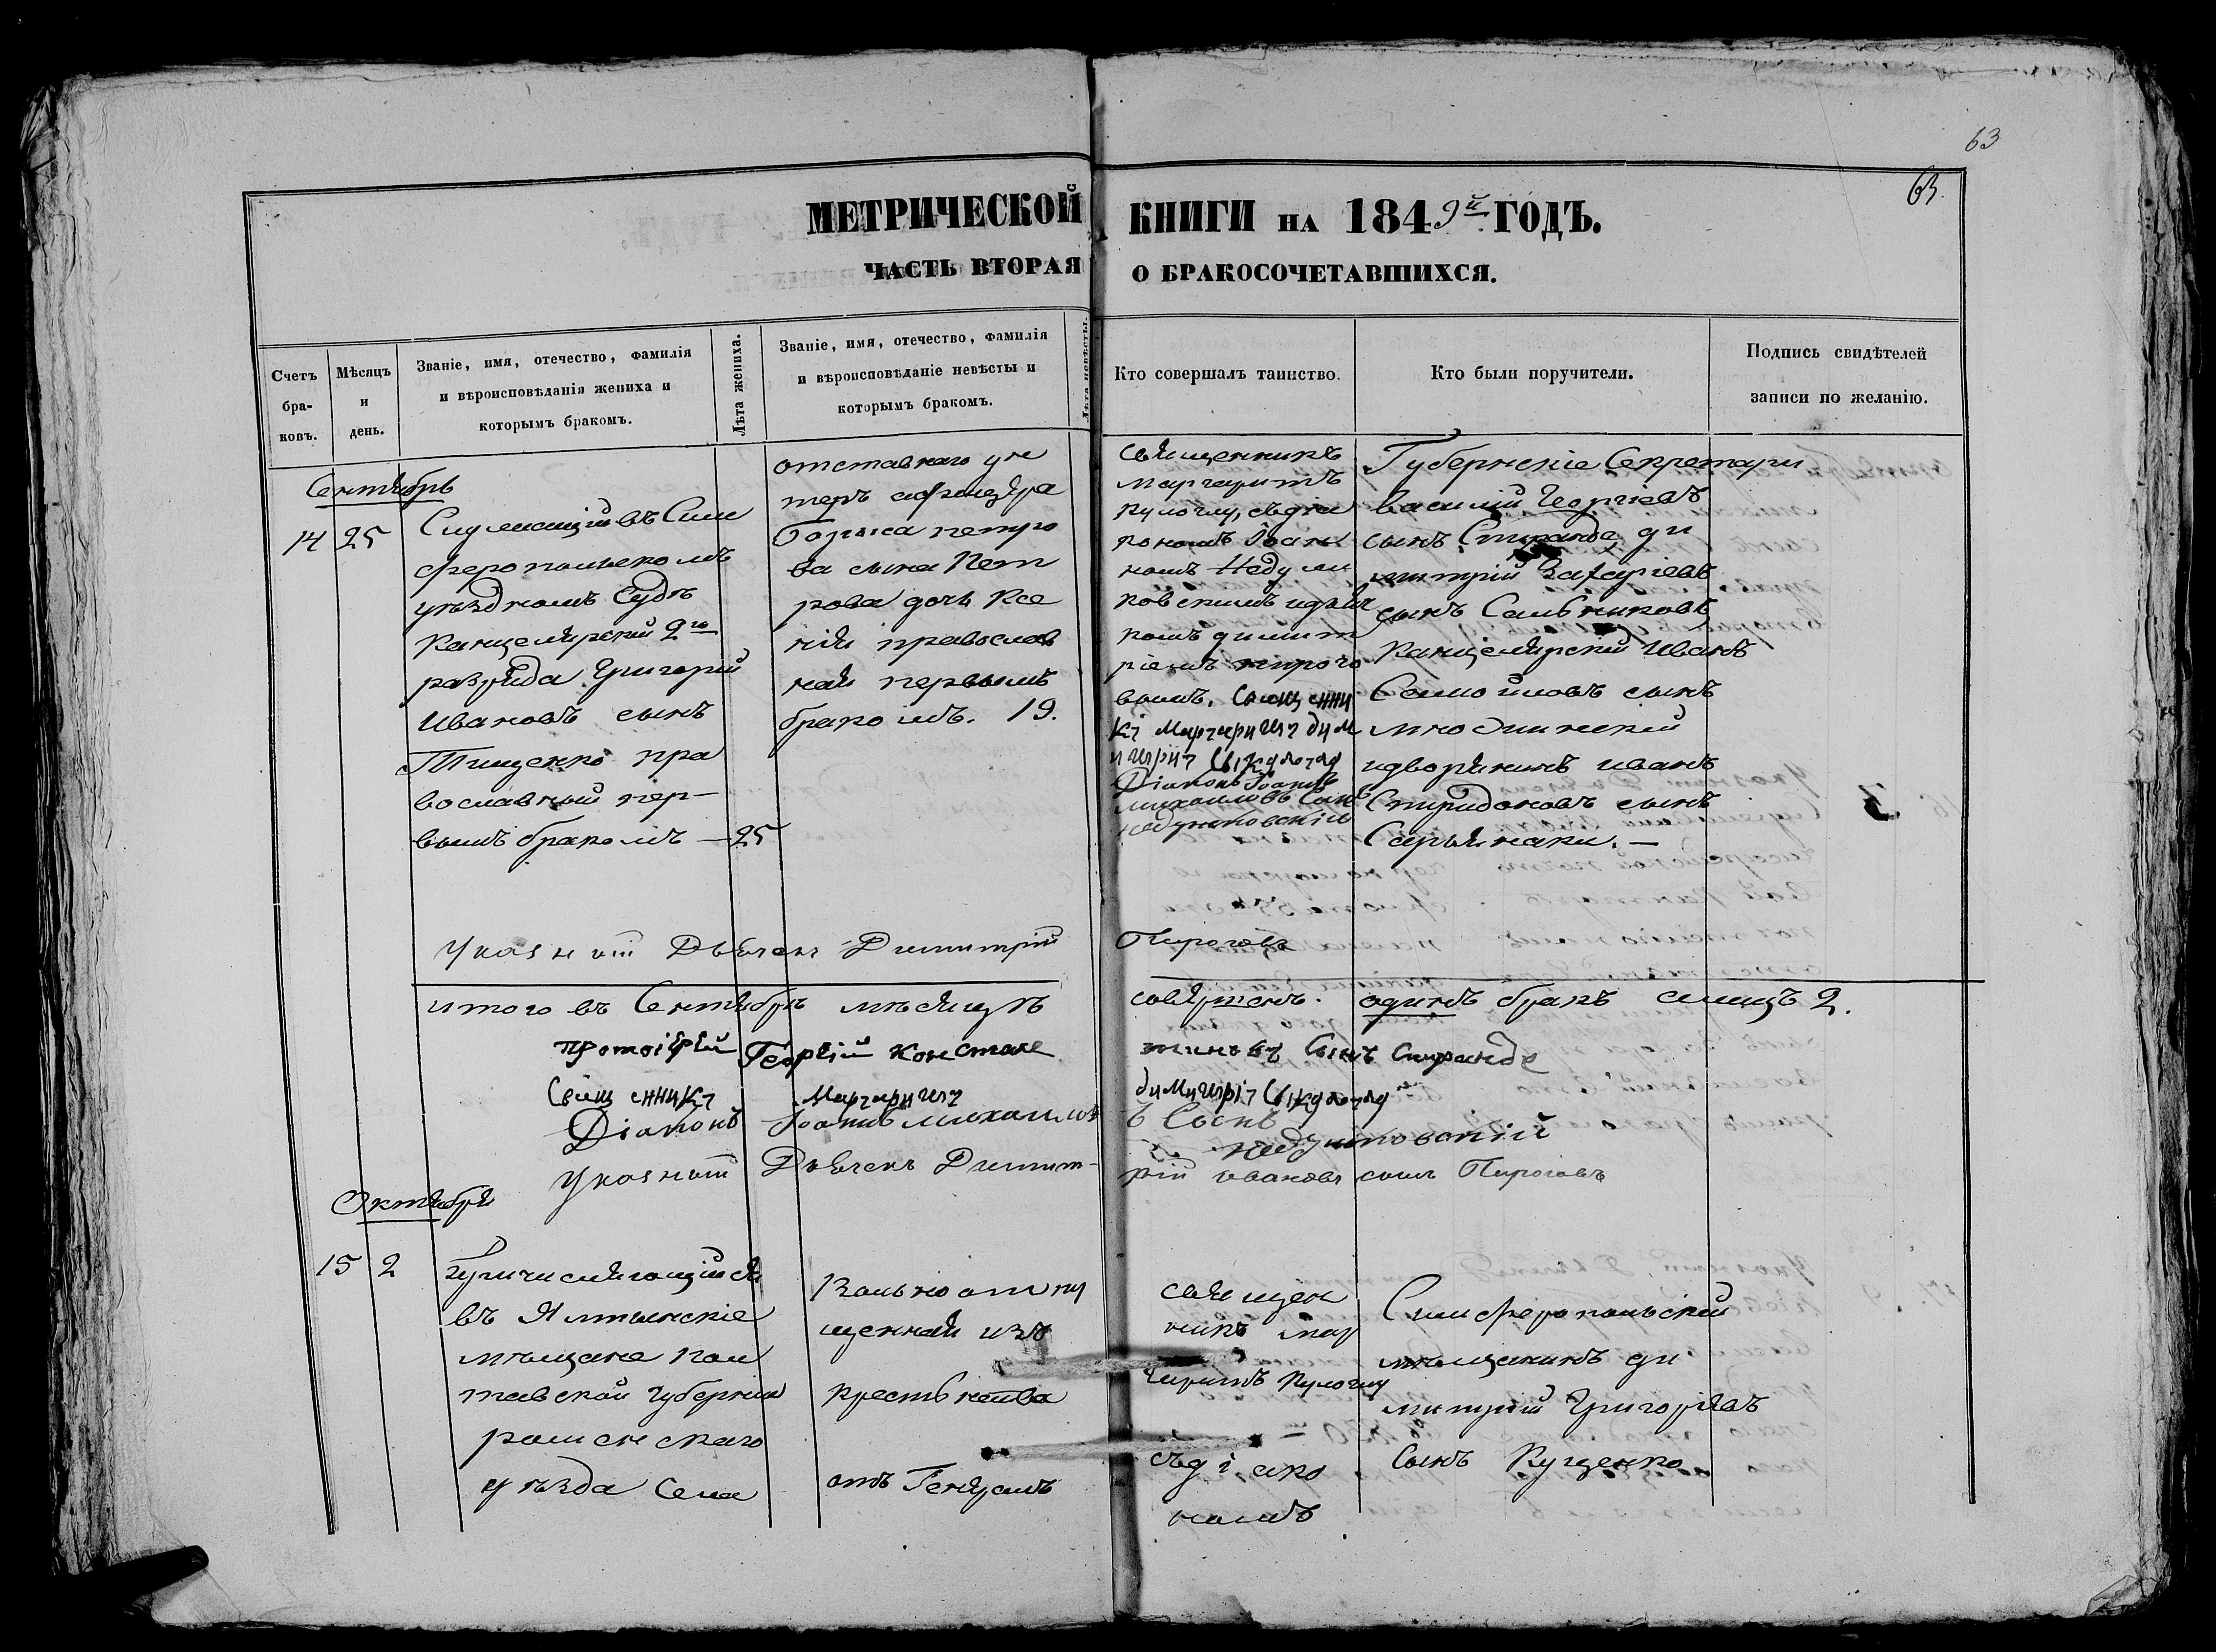 63
63.
МЕТРИЧЕСКОЙ КНИГИ НА 1849й ГОДЪ.
ЧАСТЬ ВТОРАЯ О БРАКОСОЧЕТАВШИХСЯ.
Счетъ
бра-
ковъ.
Мѣсяцъ
и
день.
Званіе, имя, отечество, фамилія
и вѣроисповѣданія жениха и
которымъ бракомъ.
Лѣта жениха.
Званіе, имя, отечество, фамилія
и вѣроисповѣданіе невѣсты и
которымъ бракомъ.
Лѣта невѣсты.
Кто совершалъ таинство.
Кто были поручители.
Подпись свидѣтелей
записи по желанію.
Сентябрь
14 25
Служащій въ Сим
феропольскомъ
уѣздномъ Судѣ
Канцелярскій 2го
разряда Григорій
Ивановъ сынъ
Тищенко пра
вославный пер-
вымъ бракомъ — 25
отставнаго ун
теръ афицера
Бориса петро
ва сына Пет
рова дочь Ксе
нія православ
ная первымъ
бракомъ. 19.
священникъ
Маргаритъ
Кулоглу, съ дія
кономъ Іоан
номъ Неду
ковскимъ идьяч
комъ димит
ріемъ пирого
вымъ. Свящ енни
къ Маргаритъ дим
Діаконъ Іоаннъ
Михаиловъ Сынъ
Губернскіе Секретари
Василій Георгіевъ
сынъ Спиранде, ди
митрій Захаріевъ
сынъ
Канцелярскій Иванъ
Самойловъ сынъ
идворянинъ иванъ
Спиридоновъ сынъ
Серьянаки. —
Указный Дьячекъ Димитрій Пироговъ
итого въ Сентябрѣ мѣсяцѣ совяршенъ. одинъ бракъ 2.
протоіерей Георгій Констан тиновъ Сынъ Спиранде
Свящ енникъ Маргаритъ
Діаконъ Іоаннъ Михаилов ъ Сынъ
Указный Дьячекъ Димит- рій ивановъ сынъ Пироговъ
Октября
15 2
причисляющійся
въ Ялтынскіе
мѣщане пол
тавской губерніи
роменскаго
уѣзда Села
Вольно отпу
щенная изъ
крестьянства
отъ
священ
никъ мар
гаритъ Кулоглу
съ діако
номъ
Симферопольскій
мѣщанинъ ди
митрій Григоріевъ
Сынъ Куценко